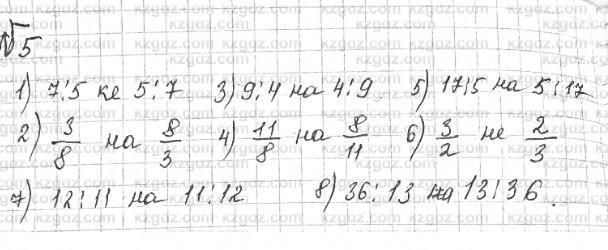 №5
1) 7:5 не 5:7 3) 9:4 на 4:9 5) 17:5 на 5:17
2) 3/8 на 8/3 4) 11/8 на 8/11 6) 3/2 не 2/3
7) 12:11 на 11:12 8) 36:13 на 13:36.